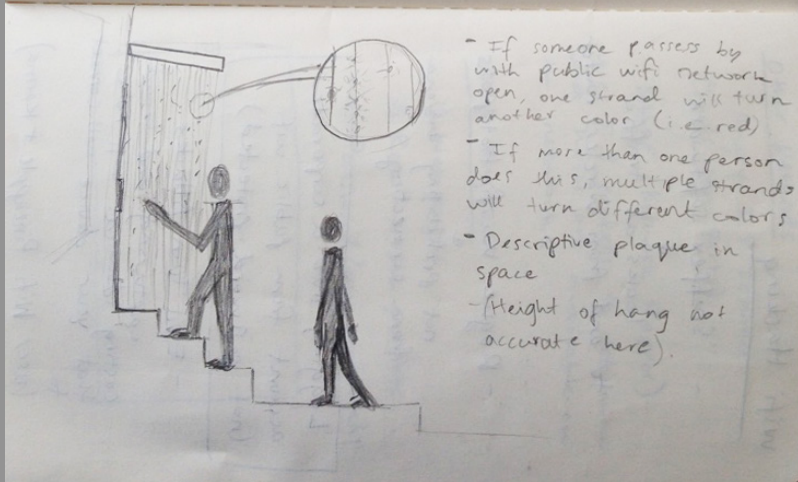 - If someone passess by
with public wifi network
open, one strand will turn
another color (i.e. red)
- If more than one person
does this, multiple strands
will turn different colors
- Descriptive plaque in
space
- (Height of hang not
accurate here).